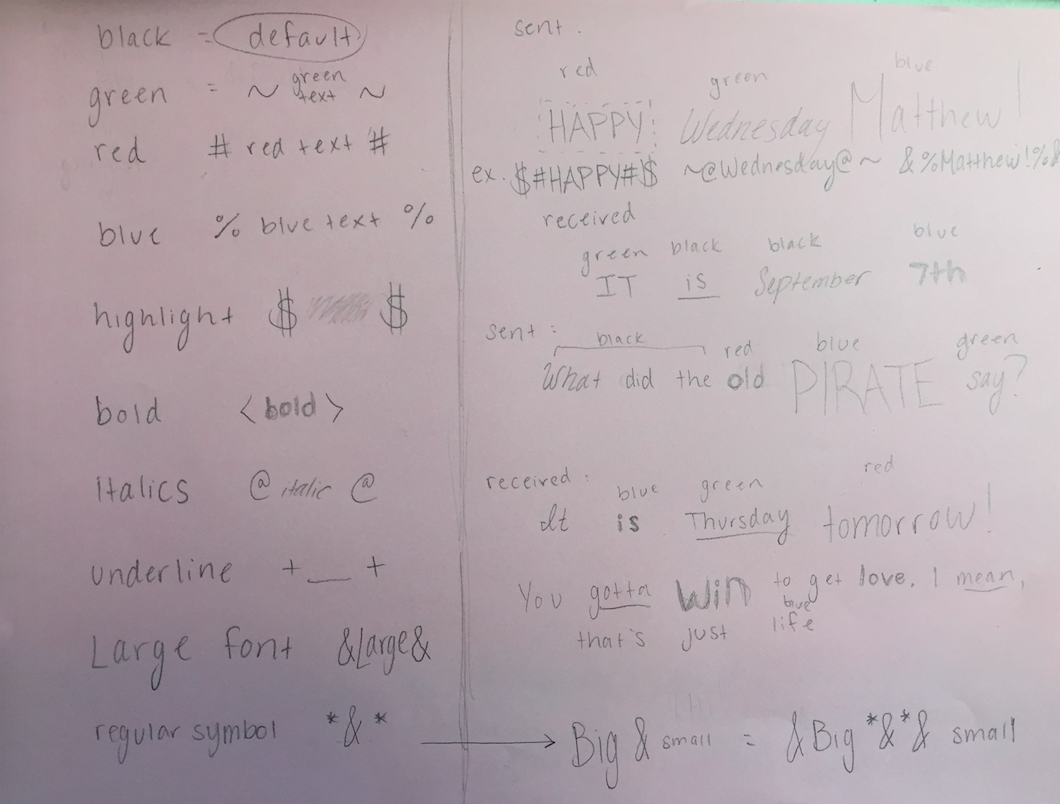 black = default
green = ~ green text ~
red # red text #
blue % blue text %
highlight $ $
bold < bold >
Italics @ italic @
underline + __ +
Large font &Large&
regular symbol *&*
sent.
red green blue
HAPPY Wednesday Matthew!
ex. $#HAPPY#$ ~@Wednesday@~ &%Matthew!%&
received
green black black blue
IT is September 7th
sent:
black red blue green
What did the old PIRATE say?
received:
blue green red
It is Thursday tomorrow!
You gotta win to get love. I mean,
blue
that's just life
Big & small = &Big *&*& small